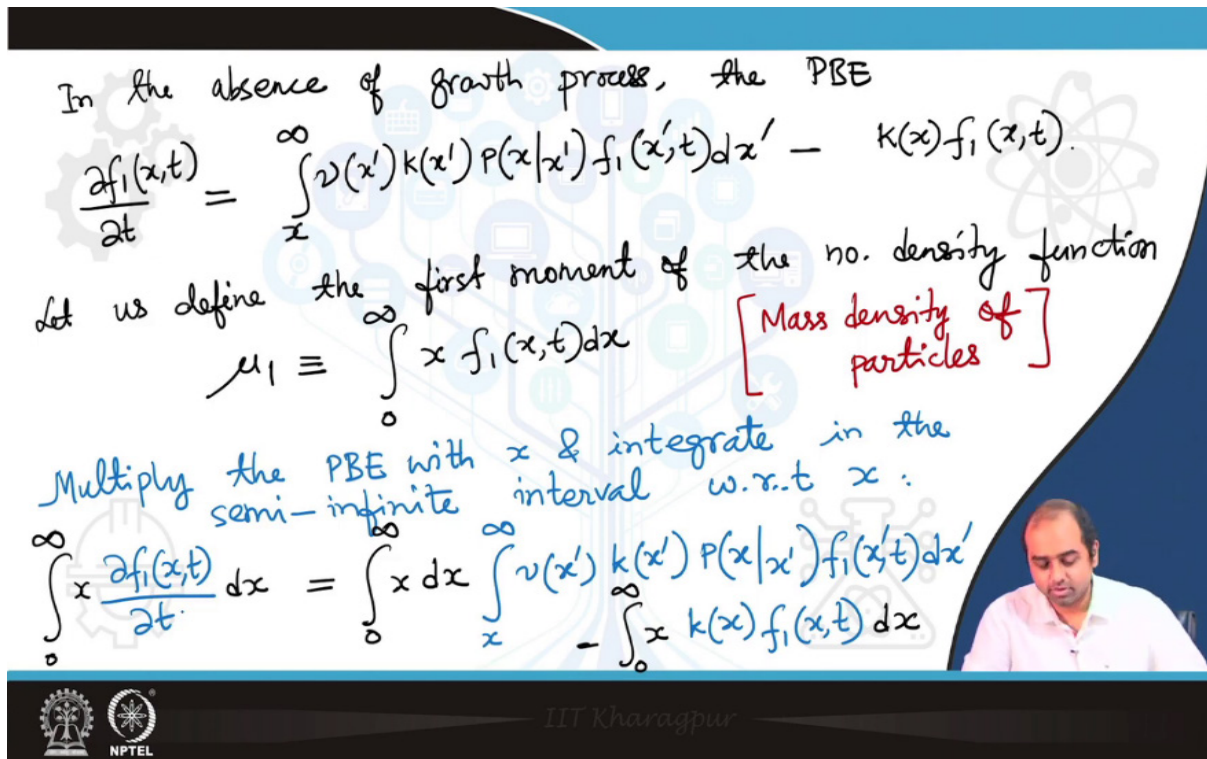 In the absence of growth process, the PBE
∂f₁(x,t)/∂t = ∫ₓ^∞ ν(x′) k(x′) P(x|x′) f₁(x′,t) dx′ − k(x) f₁(x,t).
Let us define the first moment of the no. density function
μ₁ ≡ ∫₀^∞ x f₁(x,t) dx [Mass density of
particles]
Multiply the PBE with x & integrate in the
semi-infinite interval w.r.t x :
∫₀^∞ x ∂f₁(x,t)/∂t. dx = ∫₀^∞ x dx ∫ₓ^∞ ν(x′) k(x′) P(x|x′) f₁(x′,t) dx′
- ∫₀^∞ x k(x) f₁(x,t) dx
IIT Kharagpur
NPTEL